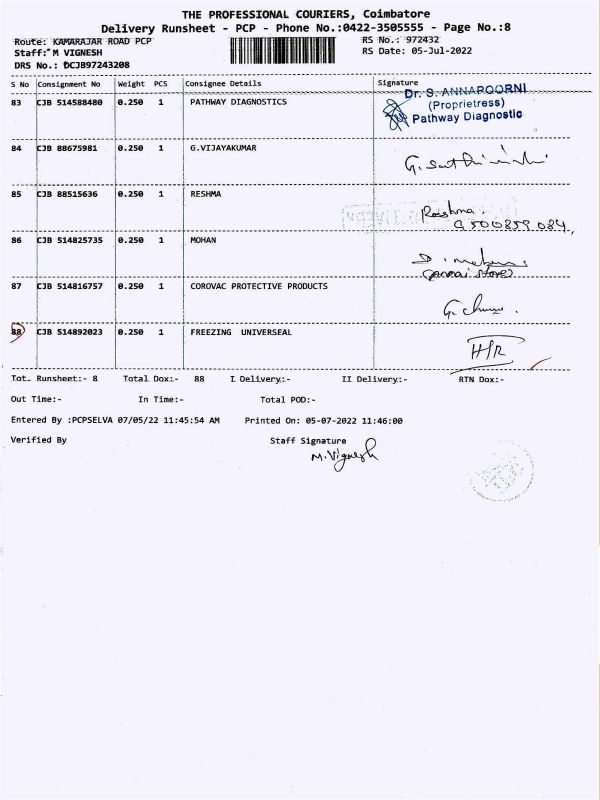 THE PROFESSIONAL COURIERS, Coimbatore
Delivery Runsheet - PCP - Phone No.:0422-3505555 - Page No.:8
Route: KAMARAJAR ROAD PCP RS No.: 972432
Staff: M VIGNESH RS Date: 05-Jul-2022
DRS No.: DCJB97243208
S No Consignment No Weight PCS Consignee Details Signature
Dr. S. ANNAPOORNI
83 CJB 514588480 0.250 1 PATHWAY DIAGNOSTICS (Proprietress)
Pathway Diagnostic
84 CJB 88675981 0.250 1 G.VIJAYAKUMAR
85 CJB 88515636 0.250 1 RESHMA
Reshma.
9500859084,
86 CJB 514825735 0.250 1 MOHAN
87 CJB 514816757 0.250 1 COROVAC PROTECTIVE PRODUCTS
88 CJB 514892023 0.250 1 FREEZING UNIVERSEAL
H/R
Tot. Runsheet:- 8 Total Dox:- 88 I Delivery:- II Delivery:- RTN Dox:-
Out Time:- In Time:- Total POD:-
Entered By :PCPSELVA 07/05/22 11:45:54 AM Printed On: 05-07-2022 11:46:00
Verified By Staff Signature
M.Vignesh